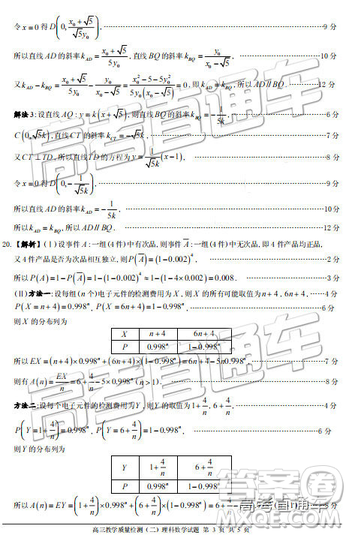 令 x=0 得 D(0, (x₀+√5)/(5y₀)) ……9 分
所以直线 AD 的斜率 k_AD = (x₀+√5)/(5y₀), 直线 BQ 的斜率 k_BQ = y₀/(x₀-√5), ……10 分
又 k_AD - k_BQ = (x₀+√5)/(5y₀) - y₀/(x₀-√5) = (x₀²-5-5y₀²)/(5y₀(x₀-√5)) = 0, 即 k_AD = k_BQ, 所以 AD∥BQ. ……12 分
解法 3: 设直线 AQ: y=k(x+√5), 则直线 BQ 的斜率 k_BQ = -1/(5k), ……6 分
C(0,√5k), 直线 CT 的斜率 k_CT = -√5k, ……7 分
又 CT⊥TD, 所以直线 TD 的方程为 y = 1/(√5k) (x-1), ……8 分
令 x=0 得 D(0, -1/(√5k)), ……9 分
所以直线 AD 的斜率 k_AD = -1/(5k), ……10 分
所以 k_AD = k_BQ, 所以 AD∥BQ. ……12 分
20. 【解析】(Ⅰ) 设事件 A: 一组 (4 件) 中有次品, 则事件 A̅: 一组 (4 件) 中无次品, 即 4 件产品均正品,
又 4 件产品是否为次品相互独立, 则 P(A̅)=(1-0.002)⁴, ……2 分
所以 P(A)=1-P(A̅)=1-(1-0.002)⁴≈1-(1-4×0.002)=0.008. ……3 分
(Ⅱ) 方法一: 设每组 (n 个) 电子元件的检测费用为 X, 则 X 的所有可能取值为 n+4, 6n+4, ……4 分
P(X=n+4)=0.998ⁿ, P(X=6n+4)=1-0.998ⁿ, ……6 分
则 X 的分布列为
X n+4 6n+4
P 0.998ⁿ 1-0.998ⁿ
所以 EX=(n+4)×0.998ⁿ+(6n+4)(1-0.998ⁿ)=6n+4-5n0.998ⁿ ……7 分
则有 A(n)=EX/n=6+4/n-5×0.998ⁿ (n>1). ……8 分
方法二: 设每个电子元件的检测费用为 Y, 则 Y 的取值为 1+4/n, 6+4/n, ……4 分
P(Y=1+4/n)=0.998ⁿ, P(Y=6+4/n)=1-0.998ⁿ, ……6 分
则 Y 的分布列为
Y 1+4/n 6+4/n
P 0.998ⁿ 1-0.998ⁿ
所以 A(n)=EY=(1+4/n)×0.998ⁿ+(6+4/n)(1-0.998ⁿ)=6+4/n-5×0.998ⁿ
高三教学质量检测(二)理科数学试题 第 3 页 共 5 页
高考直通车
高考直通车
高考直通车